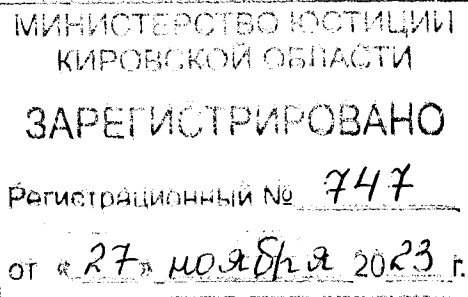 МИНИСТЕРСТВО ЮСТИЦИИ
КИРОВСКОЙ ОБЛАСТИ
ЗАРЕГИСТРИРОВАНО
Регистрационный № 747
от «27» ноября 2023 г.